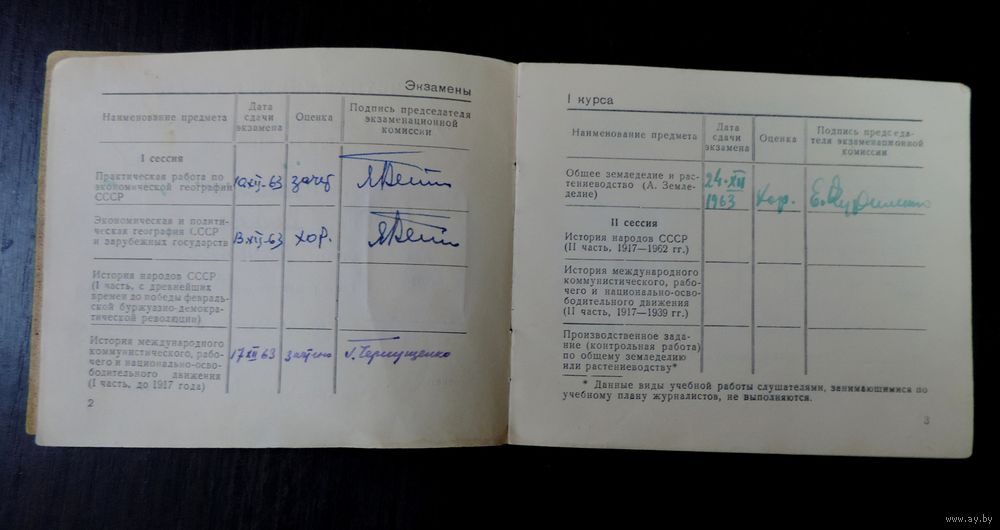 Экзамены
Наименование предмета
Дата
сдачи
экзамена
Оценка
Подпись председателя
экзаменационной
комиссии
I сессия
Практическая работа по
экономической географии
СССР
зачет
Экономическая и полити-
ческая география СССР
и зарубежных государств
13.XII-63
хор.
История народов СССР
(I часть, с древнейших
времен до победы февраль-
ской буржуазно-демокра-
тической революции)
История международного
коммунистического, рабо-
чего и национально-осво-
бодительного движения
(I часть, до 1917 года)
17 XII 63
зачтено
2
I курса
Наименование предмета
Дата
сдачи
экзамена
Оценка
Подпись председа-
теля экзаменационной
комиссии
Общее земледелие и рас-
тениеводство (А. Земле-
делие)
24-XII
1963
хор.
II сессия
История народов СССР
(II часть, 1917—1962 гг.)
История международного
коммунистического, рабо-
чего и национально-осво-
бодительного движения
(II часть, 1917—1939 гг.)
Производственное зада-
ние (контрольная работа)
по общему земледелию
или растениеводству*
* Данные виды учебной работы слушателями, занимающимися по
учебному плану журналистов, не выполняются.
3
www.ay.by